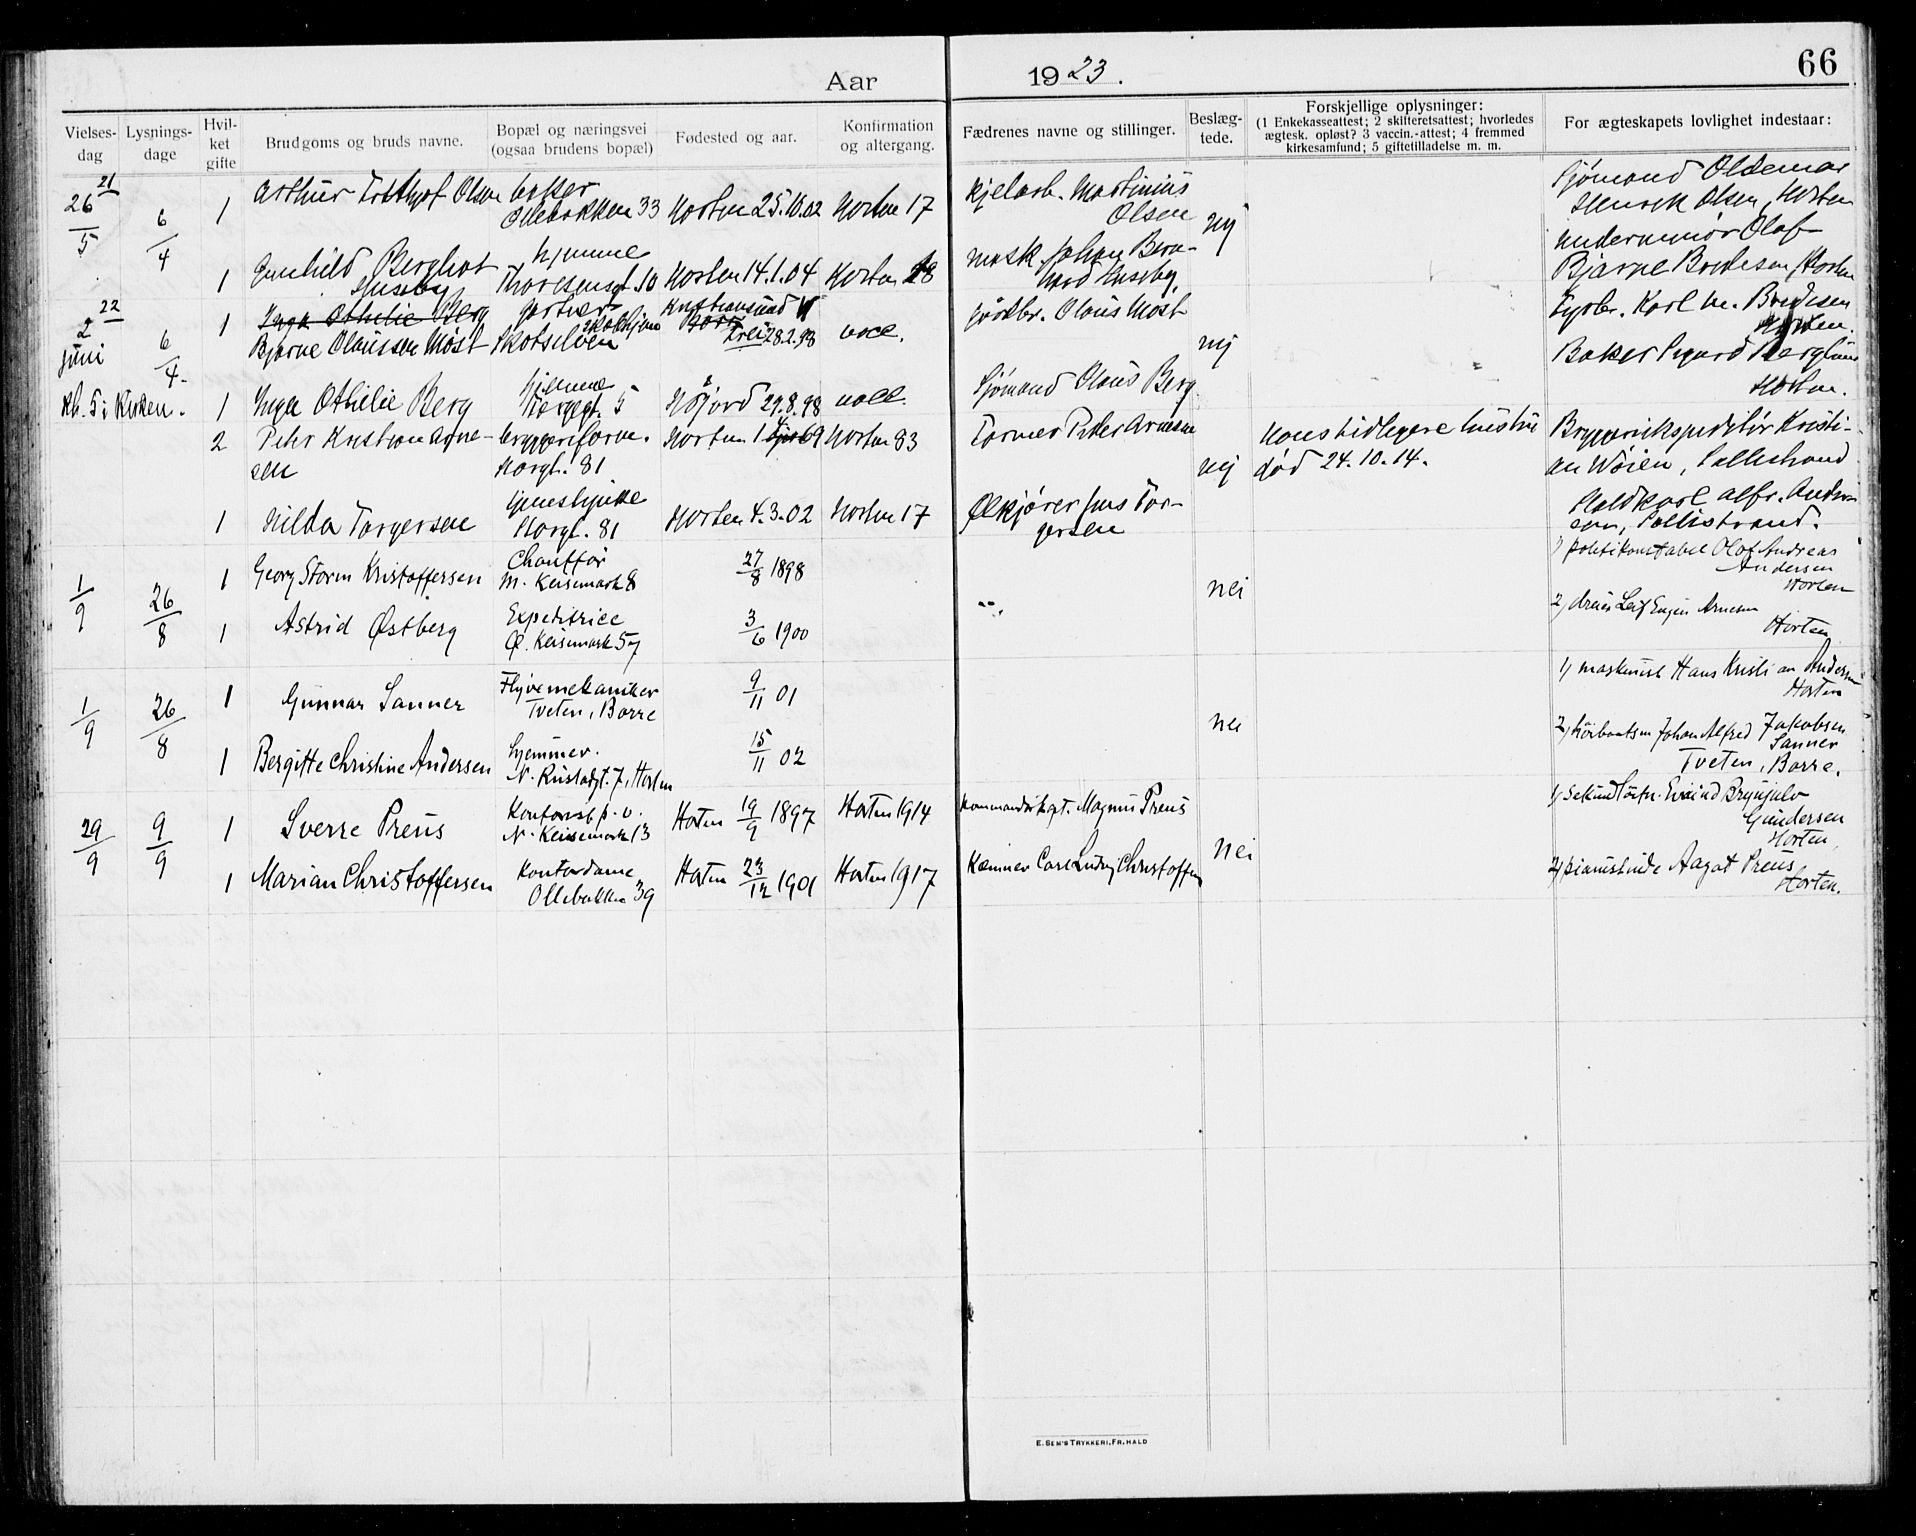 Aar 1923.
66
Vielses-dag
Lysnings-dage
Hvil-ket gifte
Brudgoms og bruds navne.
Bopæl og næringsvei (ogsaa brudens bopæl)
Fødested og aar.
Konfirmation og altergang.
Fædrenes navne og stillinger.
Beslæg-tede.
Forskjellige oplysninger:
(1 Enkekasseattest; 2 skifteretsattest; hvorledes
ægtesk. opløst? 3 vaccin.-attest; 4 fremmed
kirkesamfund; 5 giftetilladelse m. m.
For ægteskapets lovlighet indestaar:
21
26/5
6/4
1
Arthur Olsen
baker
Ollebakken 33
Horten 25.10.02
Horten 17
Kjelarb. Martinius
Olsen
nej
Sjømand Oldemar
Henrik Olsen, Horten
1
Gunhild Bergliot
Huseby
hjemme
Thoresensgt. 10
Horten 14.1.04
Horten 18
mask. Johan Bern-
hard Huseby
underminør Olaf
Bjarne Bredesen, Horten
22
2
juni
6/4.
1
Inga Othilie Berg
Bjarne Olaussen Møst
gartner
Skotselven
Kristiansund N
Frei 28.2.98
vacc.
gårdbr. Olaus Møst
nej
Fyrbr. Karl M. Bredesen
Horten.
Baker Sigurd Berglund
Horten.
kl. 5 i Kirken.
1
Inga Othilie Berg
hjemme
5
29.8.98
vacc.
Sjømand Olaus Berg
2
Peter Kristian Arne-
sen
bryggeriform.
Storgt. 81
Horten
69
Horten 83
Former Peter Arnesen
nej
Hans tidligere hustru
død 24.10.14.
Bryggeriekspeditør Kristi-
an Wøien, Falkestrand
1
Hilda Torgersen
Storgt. 81
Horten 4.3.02
Horten 17
Ølkjører Jens Tor-
gersen
Staldkarl Alfr. Andre-
sen,
1/9
26/8
1
Georg Storm Kristoffersen
Chauffør
M. Keisemark 8
27/8 1898
nei
1) politikonstabel Olaf Andreas
Andersen
Horten
1
Astrid Østberg
Expeditrice
Ø. Keisemark 57
3/6 1900
2) dreier Leif Eugen Arnesen
Horten
1/9
26/8
1
Gunnar Sanner
Flyvemekaniker
Tveten, Borre
9/11 01
nei
1) maskinist Hans Kristian Andersen
Horten
1
Bergitte Christine Andersen
hjemmev.
N. Kristadgt. 7, Horten
15/11 02
2) høibaatsm Johan Alfred Jakobsen
Sanner
Tveten, Borre.
29/9
9/9
1
Sverre Preus
N. Keisemark 13
Horten 19/9 1897
Horten 1914
Kommandørkapt. Magnus Preus
nei
1) Sekundløitn. Eivind Brynjulv
Gundersen
Horten,
1
Marian Christoffersen
Kontordame
Ollebakken 39
Horten 23/12 1901
Horten 1917
Kæmner Carl Ludvig Christoffersen
2) pianistinde Aagot Preus,
Horten.
E. SEM'S TRYKKERI, FR.HALD